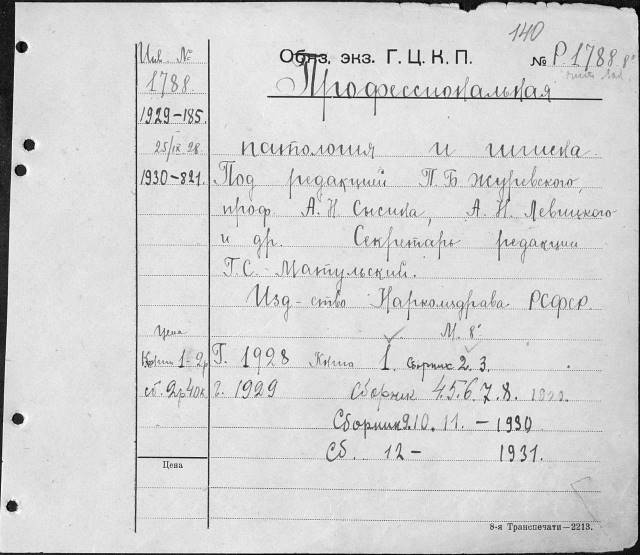 140
Инв. №
Обяз. экз. Г. Ц. К. П.
№ Р.1788. 8°
1788
Профессиональная
1929-185.
25/IX 28
патология и гигиена
1930-821.
Под редакцией П. Б. Журевского,
проф А. Н. Сысина, А. Н. Левицкого
и др. Секретарь редакции
Г. С. Матульский.
Изд-ство Наркомздрава РСФСР.
М. 8°
Цена
Книга 1-2р
Г. 1928 Книга 1. Сборник 2. 3.
сб. 2р40к
г. 1929 Сборник 4.5.6.7.8.
Сборник 9.10. 11. - 1930
Сб. 12 - 1931.
Цена
8-я Транспечати—2213.